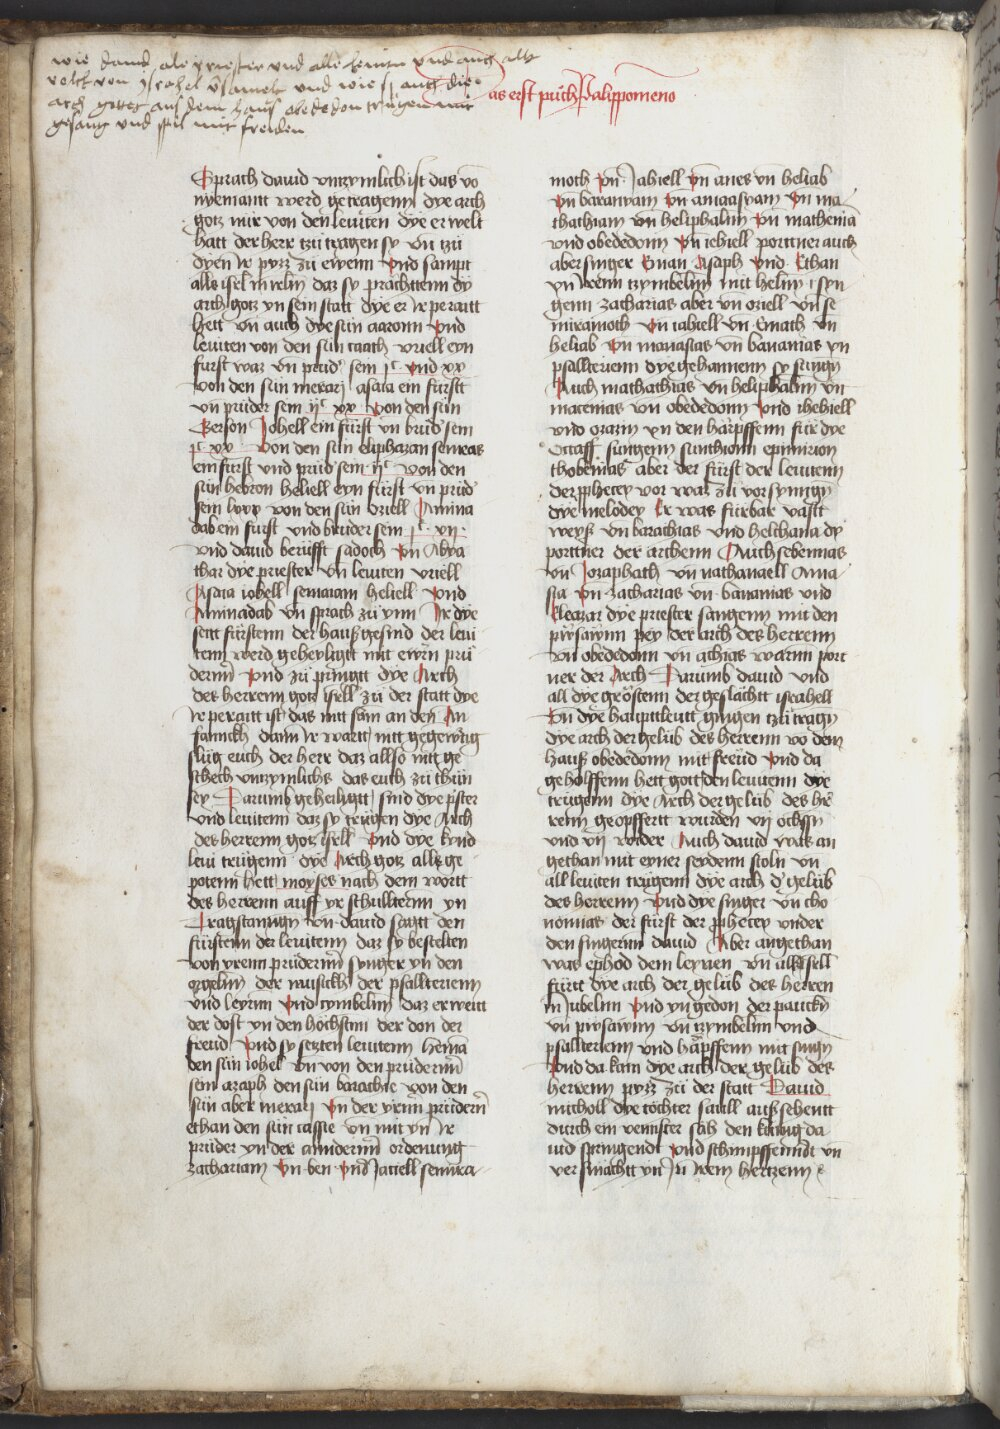 wie david ale priester und alle leuiten und auch alle
volck von ysrahel vsamelt und wie sy auch die
arch gottes aus dem haus obededon trugen mit
gesang und spil mit freiden
Das erst puch Paralippomeno
Sprach dauid vntzymlich ist das vō
nyemantt werd getragenn dye arch
gotz nür von den leuiten dye er welt
hatt der herr tzü tragen sy vn̄ tzü
dyen Ir pyzz zü ewenn Vnd sampt
alls isel in relm̄ daz sy prächttenn dy
arch gotz yn sein statt dye er Ir peraitt
hett vn̄ auch dye sün aaronn Vnd
leuiten von den sün caath vriell eyn
fürst waz vn̄ prüd' sein jᶜ vnd xx
von den sün merarj asaia ein fürstt
vn̄ prüder sein ijᶜ xx Von den sün
Gerson Johell ein fürst vn̄ brüd' sein
jᶜ xxx Von den sün elipharan semeias
ein fürst vnd prüd' sein ijᶜ von den
sün hebron heliell eyn fürst vn̄ prüd'
sein lxxx von den sün Oziell Amina
dab ein fürst vnd brüder sein jᶜ xij
vnd dauid berüfft sadoch vn̄ Abya
thar dye priester vn̄ leuiten vriell
Asaia iohell semeiam heliell Vnd
Aminadab vn̄ sprach zü ynn Ir dye
seitt fürstenn der haußgesind der leui
tenn werd geheyligtt mit ewrn̄ prü
dernn̄ Vnd zü pringtt dye Arch
des herrenn gotz isell zü der statt dye
Ir peraitt ist das nitt sam an den An
fannckh dann Ir wartt nitt gegenwtig
slüg euch der herr daz allso nitt ge
schech vntzymlichs das euch zü thün
sey Darumb geheiligtt sind dye pster
vnd leuitenn daz sy trügen dye Arch
des herrenn gotz isell Vnd dye kynd
leui trügenn dye Arch gotz alls ge
potenn hett moyses nach dem wortt
des herrenn auff yr schullternn yn
Tragstanngn vn̄ dauid sagtt den
fürstenn der leuitenn daz sy bestelten
von yrenn prüdernn̄ synger yn den
orgeln̄ der musickh der psallterienn
vnd leyrnn Vnd tymbelnn daz er weitt
der dost yn den höchstnn der don der
freüd Vnd sy setzten leuitenn hemā
den sün iohel vn̄ von den prüdernn̄
sein azaph den sün barachie von den
sün aber merarj Vn̄ der yrnn̄ prüdern̄
ethan den sün cassie vn̄ mit yn̄ Ir
prüder yn der anndernn̄ ordenung
zachariam Vn̄ ben Vnd Jaciell semira
moth Vn̄ Jahiell Vn̄ anes vn̄ heliab
Vn̄ banayam Vn̄ amaasyam Vn̄ ma
thathiam vn̄ heliphalnn Vn̄ mathenia
vnd obededonn Vn̄ iehiell porttner auch
aber singer Eman Asaph Vnd Ethan
yn̄ Irenn tzymbelnn mit helm̄ syn
genn zacharias aber vn̄ oziell vn̄ se
miramoth Vn̄ iahiell vn̄ Emath vn̄
heliab Vn̄ monasias vn̄ bananias yn̄
psallterienn dye gehannenn sy sungn̄
Auch mathathias vn̄ heliphalnn vn̄
macenias vn̄ obededonn Vnd iheiell
vnd ozazni yn den härpffenn für dye
Octaff sungenn sunthionn epinnition
thobenias aber der fürst der leuitenn
der pphetey vor waz zü vorsynngn̄
dye melodey Er was fürbar vastt
weyß vn̄ barachias vnd helchana dy
porttner der archenn Auch sebennias
vn̄ Jozaphath vn̄ nathanaell Ama
sia Vn̄ zacharias vn̄ bananias vnd
Eleazar dye priester sangenn mit den
pusawnn pey der arch des herrenn
vn̄ obededonn vn̄ achias warnn port
ner der Arch Darumb dauid vnd
all dye gröstenn der geslächtt israhell
Vn̄ dye hauptleutt gingen tzü tragn̄
dye arch der gelüb des herrenn vō dem
hauß obededonn mit freüd Vnd da
geholffenn hett gott den leuitenn dye
trügenn dye Arch der gelüb des hē
renn geopffertt wurden vij ochssn̄
vnd vij wider Auch dauid was an
gethan mit eyner seydenn stoln vn̄
all leuiten trügenn dye arch d' gelüb
des herrenn Vnd dye singer vn̄ cho
nonias der fürst der pphetey vnder
den singernn̄ dauid Aber angethan
was ephod dem leynen vn̄ alls isell
fürtt dye arch der gelüb des herren
in Jubelnn Vnd yn gedon der pauckn̄
vn̄ pusawnn vn̄ tzymbelnn vnd
psallterienn vnd härpffenn mit singn̄
Vnd da kam dye arch der gelüb des
herrenn pyzz zü der statt Dauid
micholl dye töchter saull auß schautt
durch ein vennster sah den kunig da
uid springendt Vnd schimpffenndt vn̄
versmächtt yn̄ Jn̄ Irem hertzenn